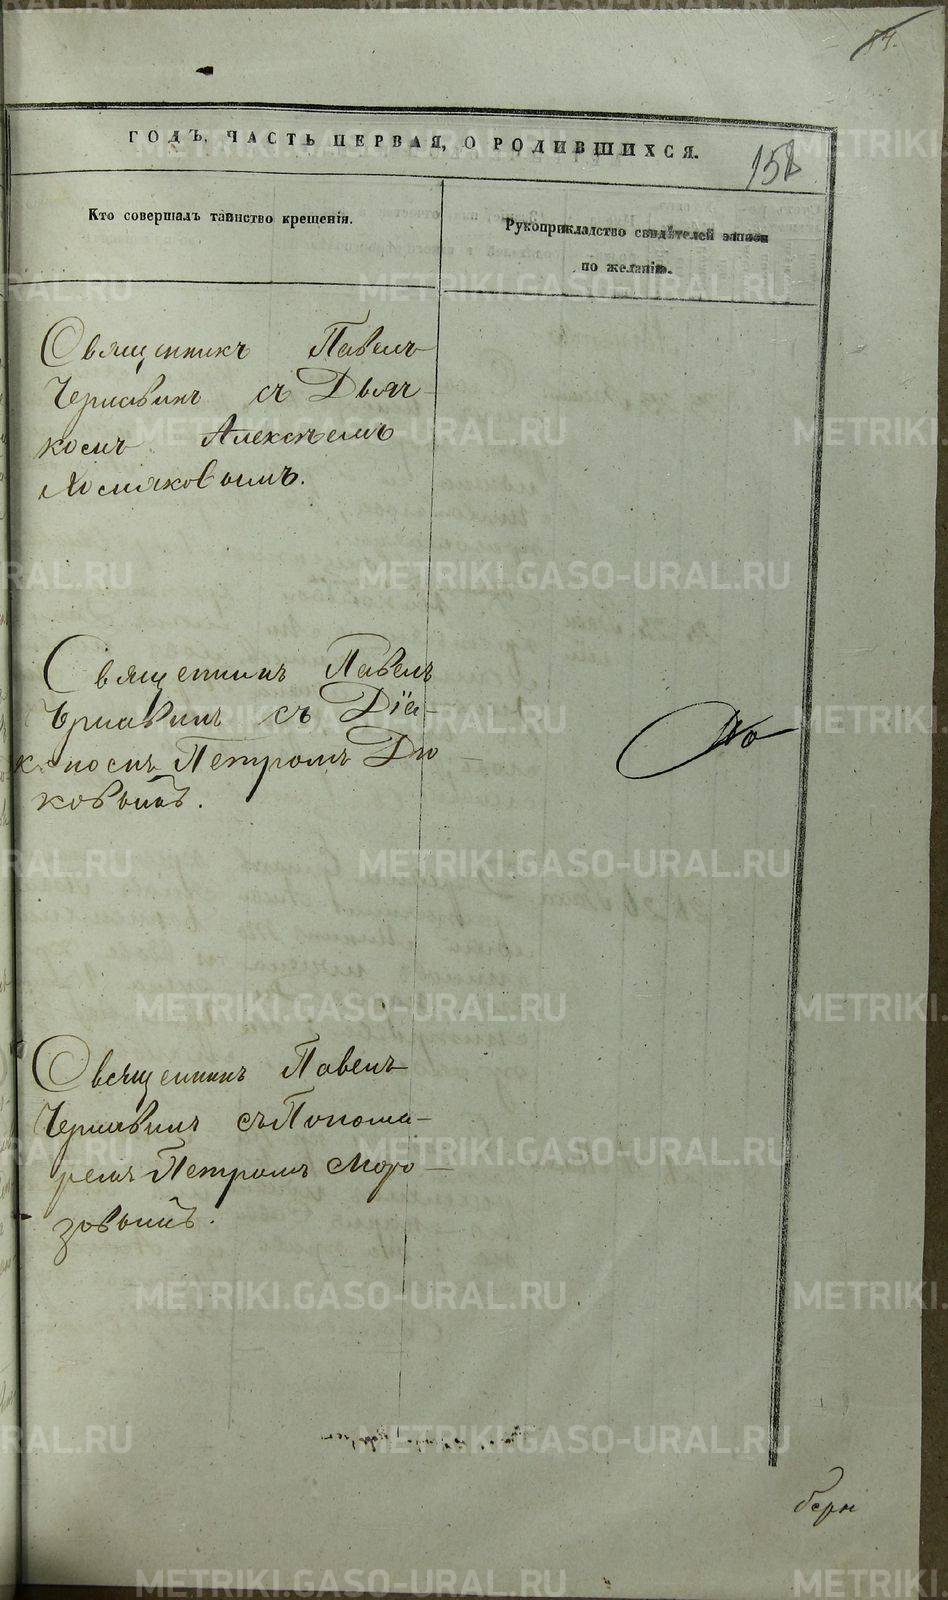 84.
ГОДЪ, ЧАСТЬ ПЕРВАЯ, О РОДИВШИХСЯ.
158
Кто совершалъ таинство крещенія.
Рукоприкладство свидѣтелей записи
по желанію.
Священникъ Павелъ
Чернавинъ съ Дьяч-
комъ Алексѣемъ
Хомяковымъ.
Священникъ Павелъ
Чернавинъ съ Діа-
кономъ Петромъ
ковымъ.
но
Священникъ Павелъ
Чернавинъ съ Понома-
ремъ Петромъ Моро-
зовымъ.
METRIKI.GASO-URAL.RU